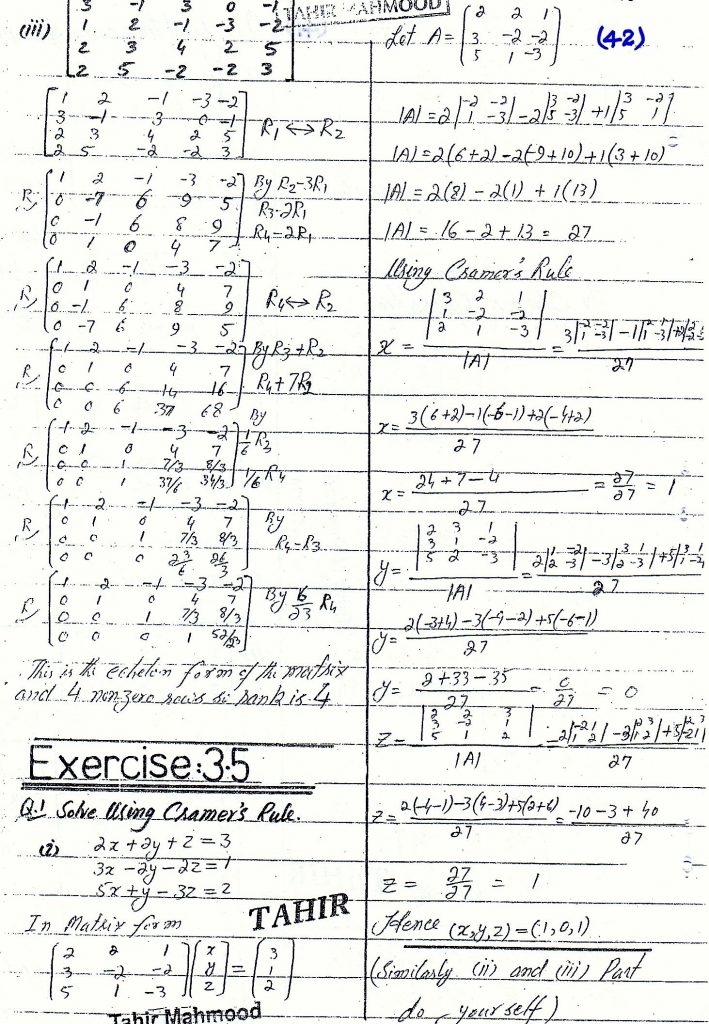 (iii)
3 -1 3 0 -1
1 2 -1 -3 -2
2 3 4 2 5
2 5 -2 -2 3
1 2 -1 -3 -2
3 -1 3 0 -1
2 3 4 2 5
2 5 -2 -2 3
R₁ ↔ R₂
R
1 2 -1 -3 -2
0 -7 6 9 5
0 -1 6 8 9
0 1 0 4 7
By R₂-3R₁
R₃-2R₁
R₄-2R₁
R
1 2 -1 -3 -2
0 1 0 4 7
0 -1 6 8 9
0 -7 6 9 5
R₄ ↔ R₂
R
1 2 -1 -3 -2
0 1 0 4 7
0 0 6 12 16
0 0 6 37 68
By R₃+R₂
R₄+7R₂
R
1 2 -1 -3 -2
0 1 0 4 7
0 0 1 7/3 8/3
0 0 1 37/6 34/3
By
1/6 R₃
1/6 R₄
R
1 2 -1 -3 -2
0 1 0 4 7
0 0 1 7/3 8/3
0 0 0 23/6 26/3
By
R₄-R₃
R
1 2 -1 -3 -2
0 1 0 4 7
0 0 1 7/3 8/3
0 0 0 1 52/23
By 6/23 R₄
This is the echelon form of the matrix
and 4 non-zero rows so rank is 4
Exercise:3.5
Q.1 Solve Using Cramer's Rule.
(i) 2x + 2y + z = 3
3x - 2y - 2z = 1
5x + y - 3z = 2
In Matrix form
TAHIR
2 2 1
3 -2 -2
5 1 -3
x
y
z
=
3
1
2
Tahir Mahmood
TAHIR MAHMOOD
(42)
Let A =
2 2 1
3 -2 -2
5 1 -3
|A| = 2 |-2 -2; 1 -3| - 2 |3 -2; 5 -3| + 1 |3 -2; 5 1|
|A| = 2(6+2) - 2(-9+10) + 1(3+10)
|A| = 2(8) - 2(1) + 1(13)
|A| = 16 - 2 + 13 = 27
Using Cramer's Rule
x = |3 2 1; 1 -2 -2; 2 1 -3| / |A| = 3|-2 -2; 1 -3| - 1|2 1; 1 -3| + 2|2 1; -2 -2| / 27
x = 3(6+2)-1(-6-1)+2(-4+2) / 27
x = 24 + 7 - 4 / 27 = 27/27 = 1
y = |2 3 1; 3 1 -2; 5 2 -3| / |A| = 2|1 -2; 2 -3| - 3|3 1; 2 -3| + 5|3 1; 1 -2| / 27
y = 2(-3+4)-3(-9-2)+5(-6-1) / 27
y = 2+33-35 / 27 = 0/27 = 0
z = |2 2 3; 3 -2 1; 5 1 2| / |A| = 2|-2 1; 1 2| - 3|2 3; 1 2| + 5|2 3; -2 1| / 27
z = 2(-4-1)-3(4-3)+5(2+6) / 27 = -10 - 3 + 40 / 27
z = 27/27 = 1
Hence (x,y,z) = (1,0,1)
(Similarly (ii) and (iii) Part
do yourself)